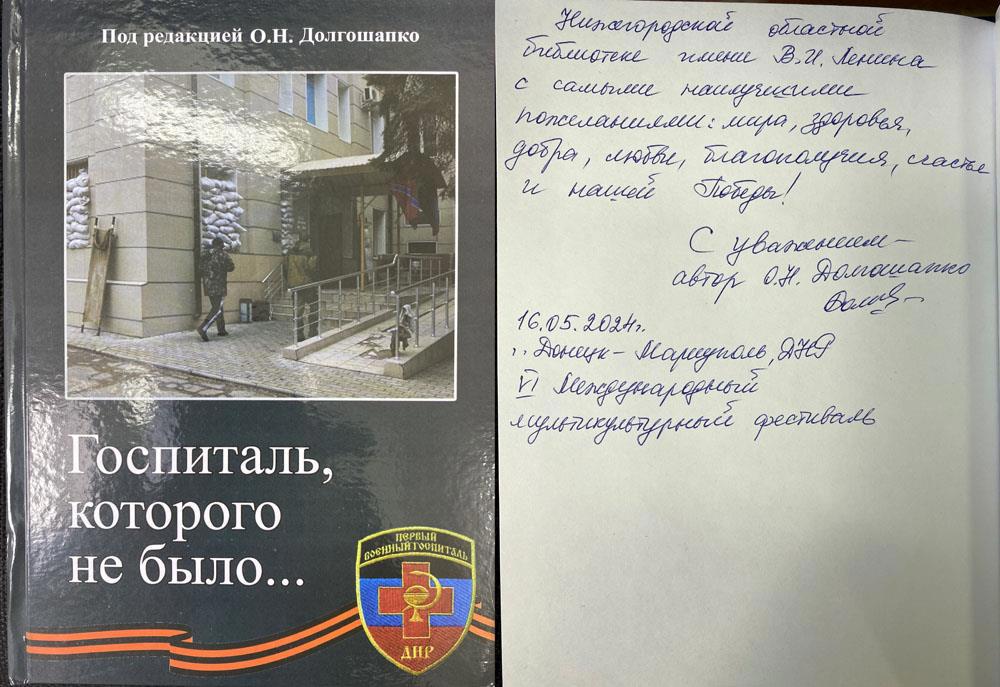 Под редакцией О.Н. Долгошапко
Госпиталь,
которого
не было...
ПЕРВЫЙ
ВОЕННЫЙ ГОСПИТАЛЬ
ДНР
Нижегородской областной
библиотеке имени В.И. Ленина
с самыми наилучшими
пожеланиями: мира, здоровья,
добра, любви, благополучия, счастья
и нашей Победы!
С уважением –
автор О.Н. Долгошапко
16.05.2024г.
г. Донецк – Мариуполь, ДНР
VI Международный
мультикультурный фестиваль